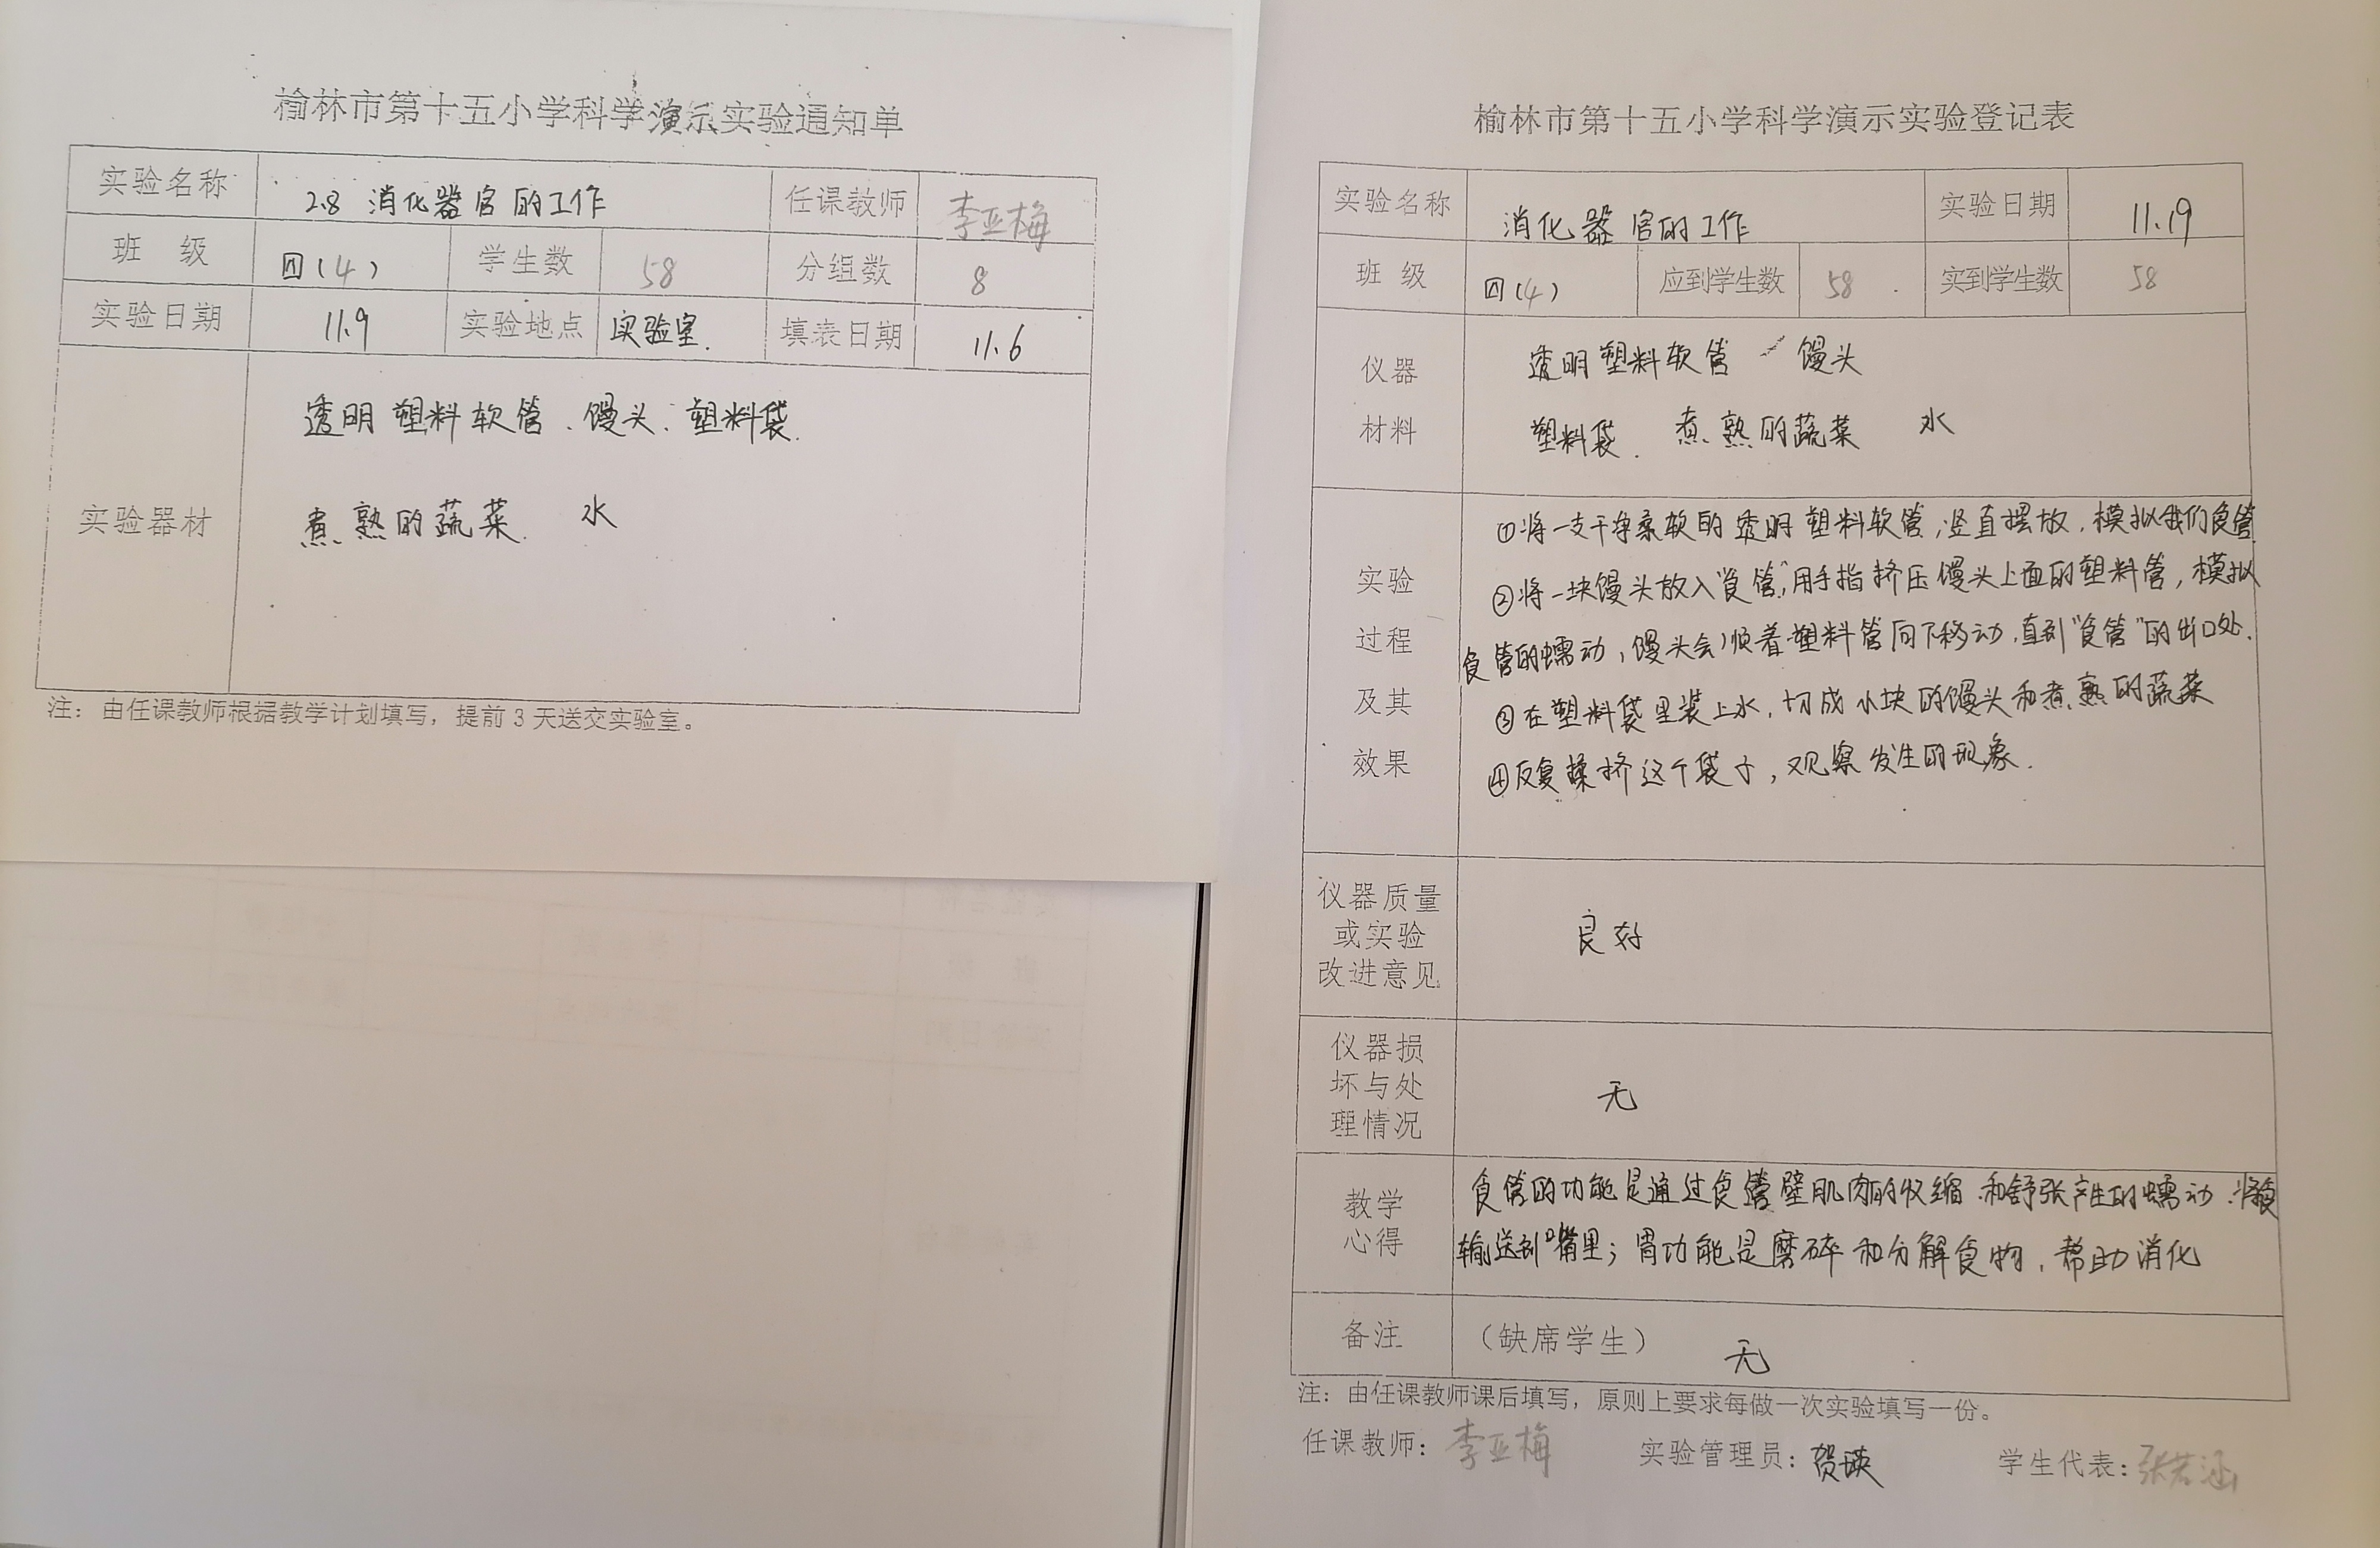 榆林市第十五小学科学演示实验通知单
实验名称 2.8 消化器官的工作 任课教师 李亚梅
班 级 四(4) 学生数 58 分组数 8
实验日期 11.9 实验地点 实验室. 填表日期 11.6
实验器材
透明塑料软管、馒头、塑料袋.
煮熟的蔬菜. 水
注：由任课教师根据教学计划填写，提前3天送交实验室。
榆林市第十五小学科学演示实验登记表
实验名称 消化器官的工作 实验日期 11.19
班 级 四(4) 应到学生数 58 实到学生数 58
仪器
材料
透明塑料软管 馒头
塑料袋. 煮熟的蔬菜 水
实验
过程
及其
效果
①将一支干净柔软的透明塑料软管,竖直摆放,模拟我们食管
②将一块馒头放入"食管",用手指挤压馒头上面的塑料管,模拟
食管的蠕动,馒头会顺着塑料管向下移动,直到"食管"的出口处.
③在塑料袋里装上水,切成小块的馒头和煮熟的蔬菜
④反复揉挤这个袋子,观察发生的现象.
仪器质量
或实验
改进意见
良好
仪器损
坏与处
理情况
无
教学
心得
食管的功能是通过食管壁肌肉的收缩和舒张产生的蠕动.将食
输送到嘴里;胃功能是磨碎和分解食物,帮助消化
备注 （缺席学生） 无
注：由任课教师课后填写，原则上要求每做一次实验填写一份。
任课教师：李亚梅 实验管理员：贺瑛 学生代表：张若涵